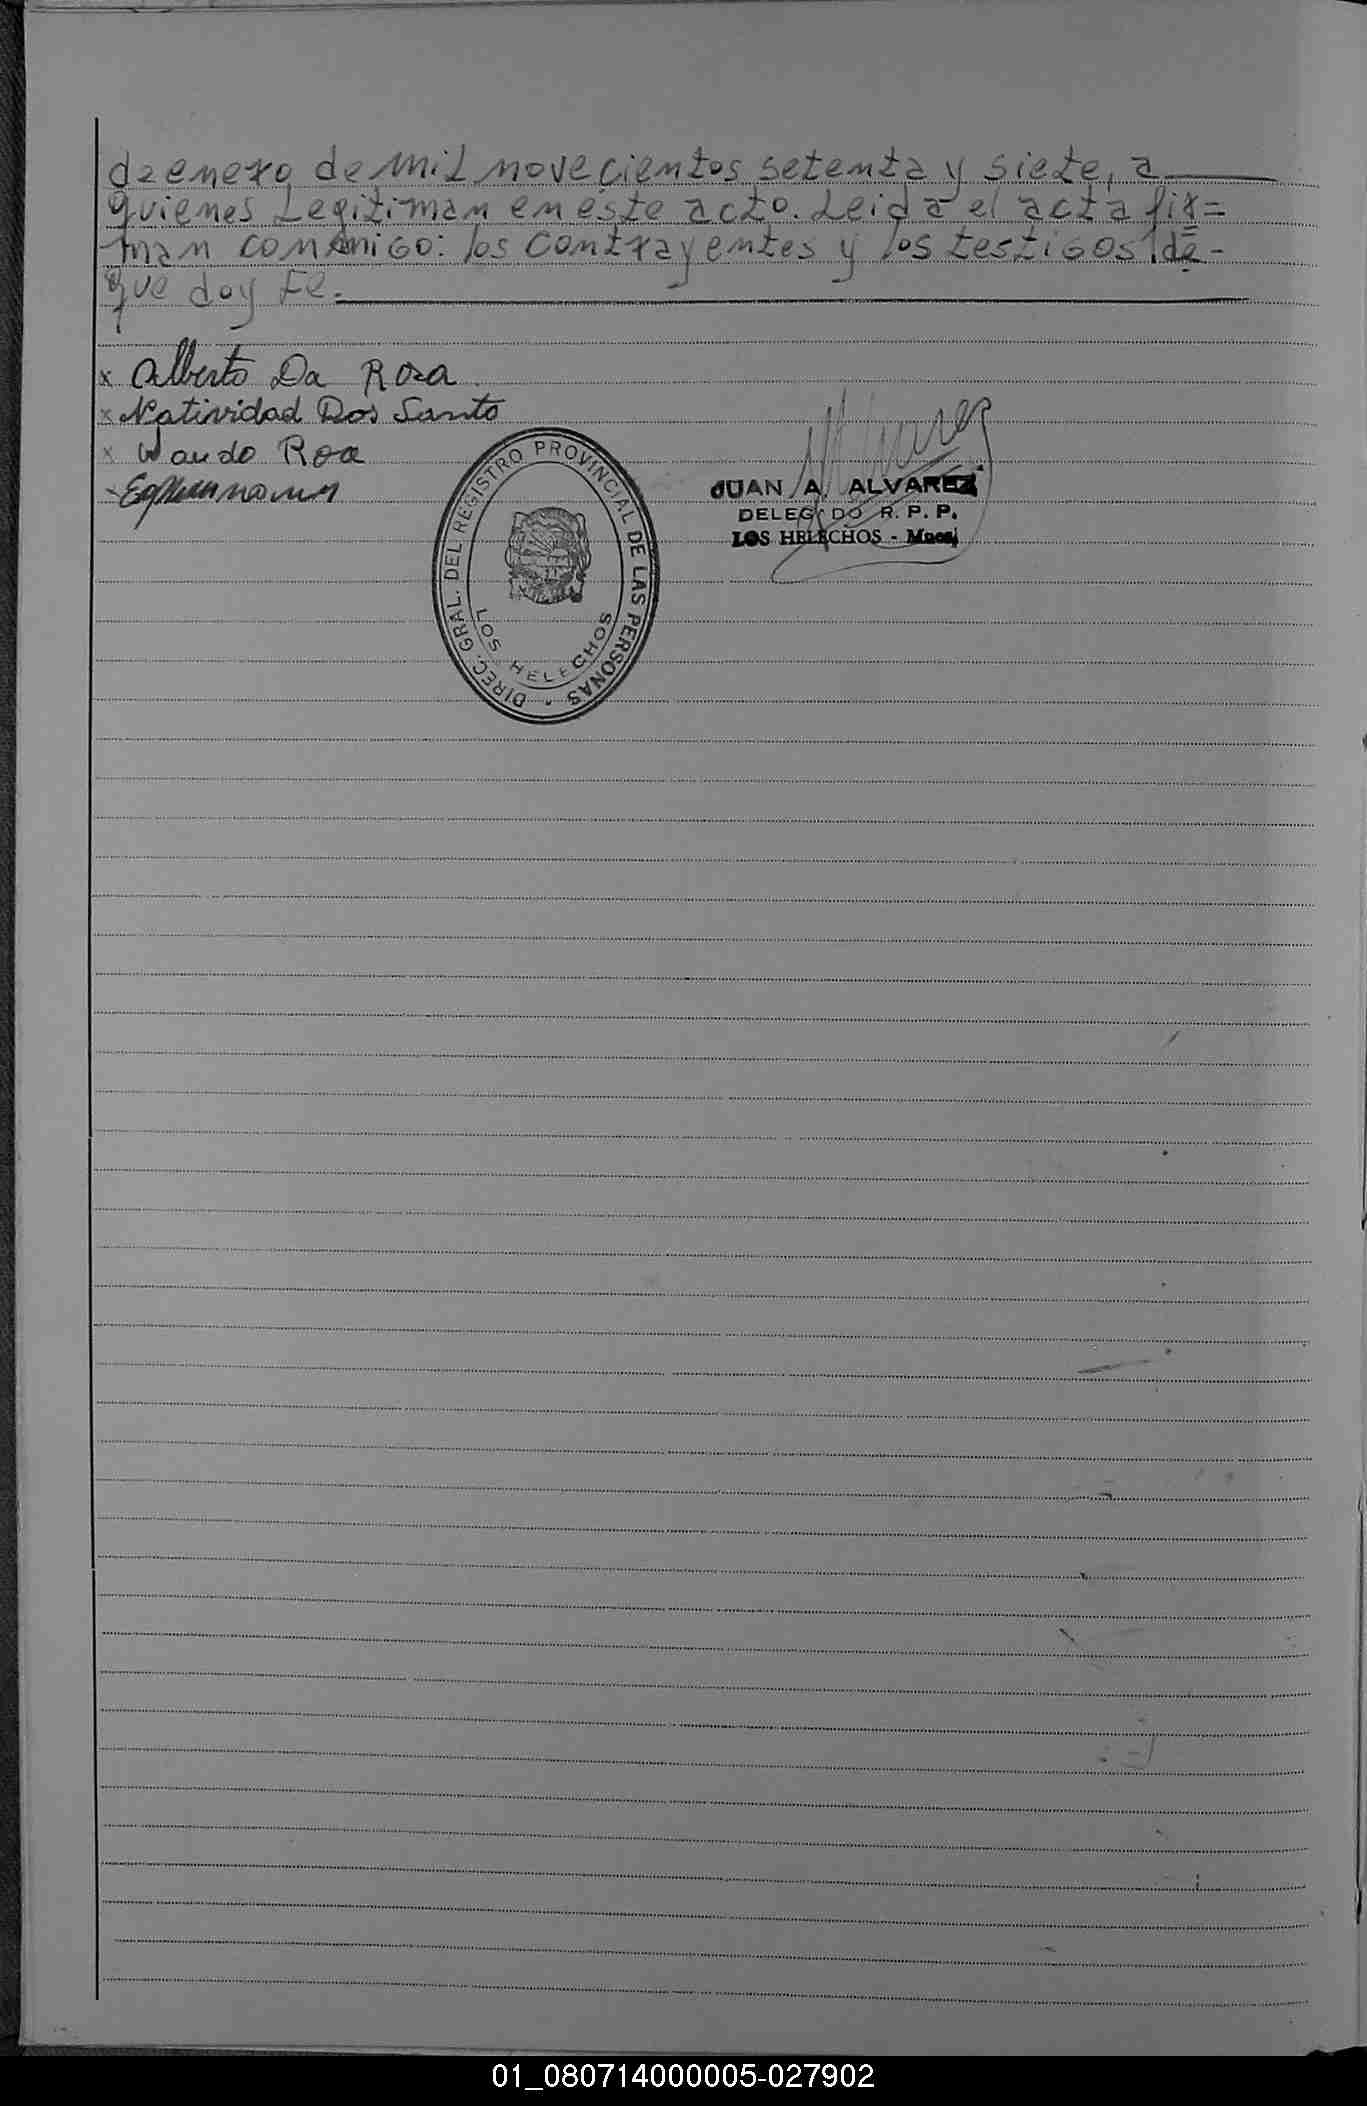 de enero de mil novecientos setenta y siete, a
quienes Legitiman en este acto. Leida el acta fir=
man conmigo: los contrayentes y los testigos de-
que doy Fe.
x Alberto Da Rosa
x Natividad Dos Santo
x Wando Roa
DIREC. GRAL. DEL REGISTRO PROVINCIAL DE LAS PERSONAS
LOS HELECHOS
Alvarez
JUAN A. ALVAREZ
DELEGADO R. P. P.
LOS HELECHOS - Mnes
01_080714000005-027902